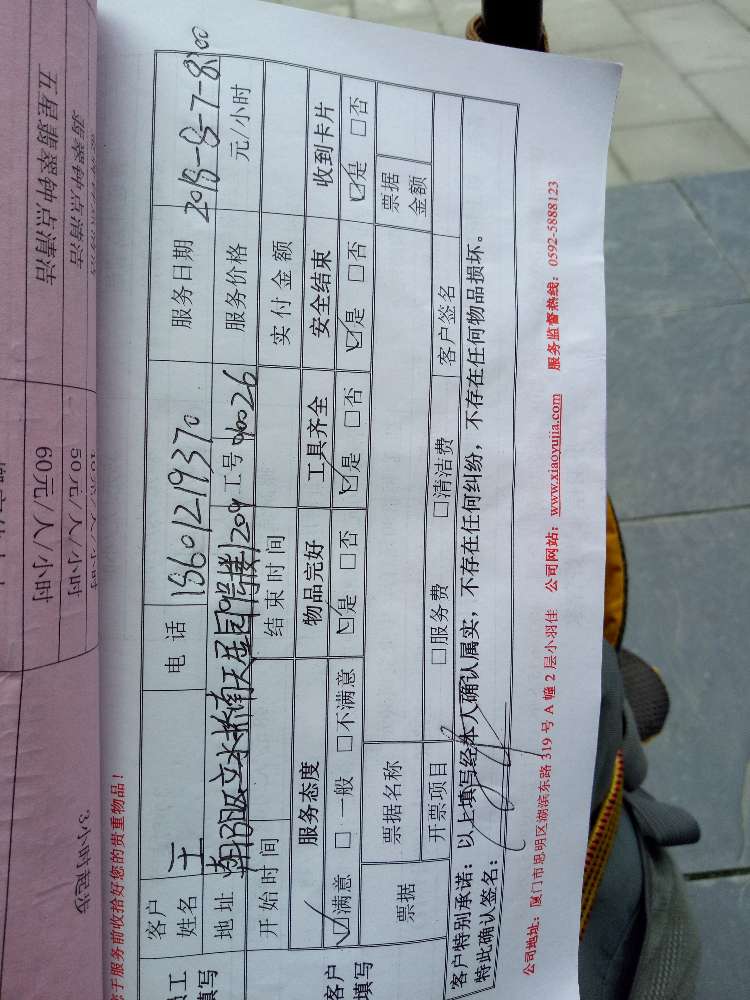 五星翡翠钟点清洁
60元/人/小时
翡翠钟点清洁
50元/人/小时
3小时起步
于服务前收拾好您的贵重物品！
填写
客户姓名 王 电话 18601219370 服务日期 2018-8-7-8:00
地址 朝阳区立水桥南天居园 楼1209 工号 00026 服务价格 元/小时
开始时间 结束时间 实付金额
客户填写
服务态度 物品完好 工具齐全 安全结束 收到卡片
☑满意 □一般 □不满意 ☑是 □否 ☑是 □否 ☑是 □否 ☑是 □否
票据 票据名称 票据金额
开票项目 □服务费 □清洁费 客户签名
客户特别承诺：以上填写经本人确认属实，不存在任何纠纷，不存在任何物品损坏。
特此确认签名：
公司地址：厦门市思明区湖滨东路 319 号 A 幢 2 层小羽佳 公司网站：www.xiaoyujia.com 服务监督热线：0592-5888123